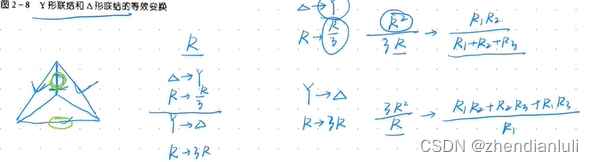 图2-8 Y形联结和Δ形联结的等效变换
R
Δ→Y
R→R/3
Y→Δ
R→3R
Δ→Y
R→R/3
R²/3R → R₁R₂/(R₁+R₂+R₃)
Y→Δ
R→3R
3R²/R → (R₁R₂+R₂R₃+R₁R₃)/R₁
CSDN @zhendianluli